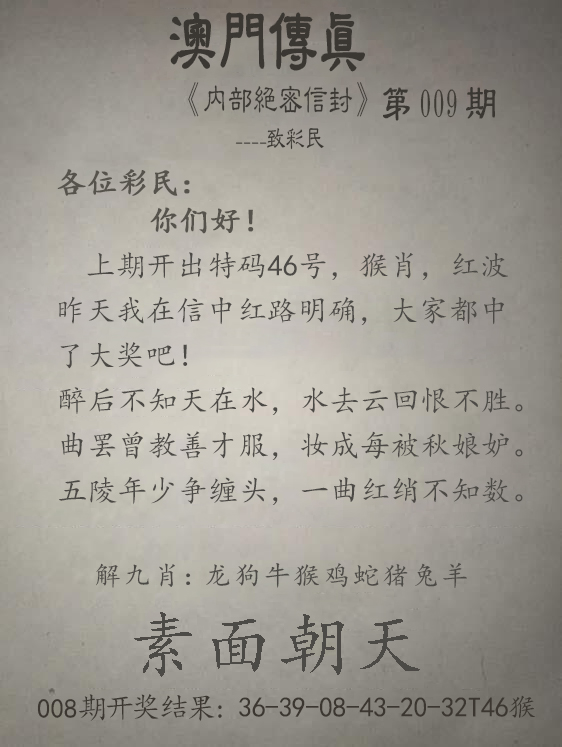 澳門傳眞
《内部絕密信封》第009期
----致彩民
各位彩民：
你们好！
上期开出特码46号，猴肖，红波
昨天我在信中红路明确，大家都中
了大奖吧！
醉后不知天在水，水去云回恨不胜。
曲罢曾教善才服，妆成每被秋娘妒。
五陵年少争缠头，一曲红绡不知数。
解九肖：龙狗牛猴鸡蛇猪兔羊
素面朝天
008期开奖结果：36-39-08-43-20-32T46猴